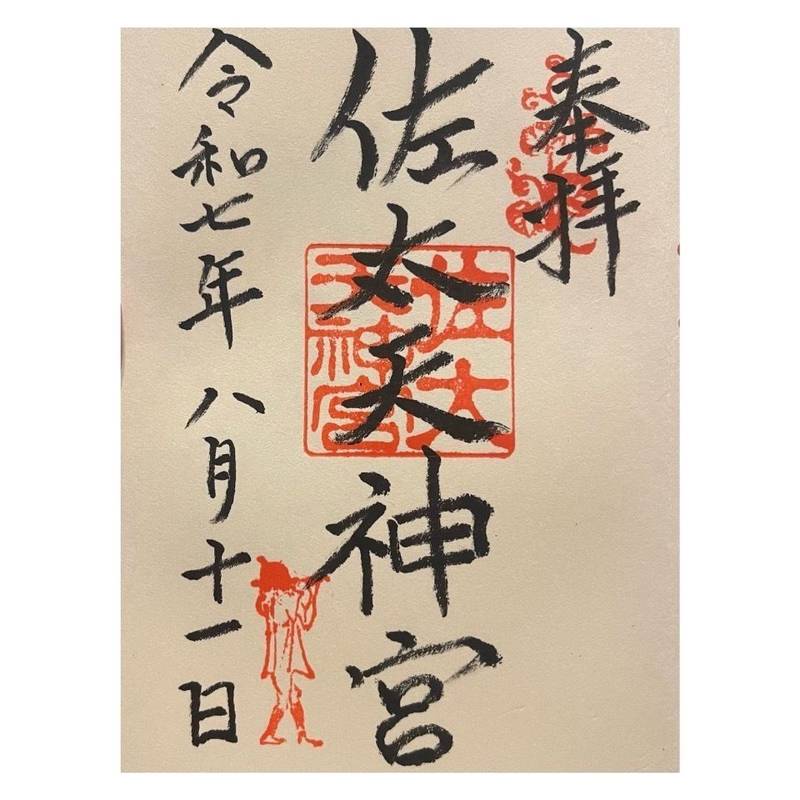 奉拝
佐太天神宮
佐太
天神宮
令和七年八月十一日